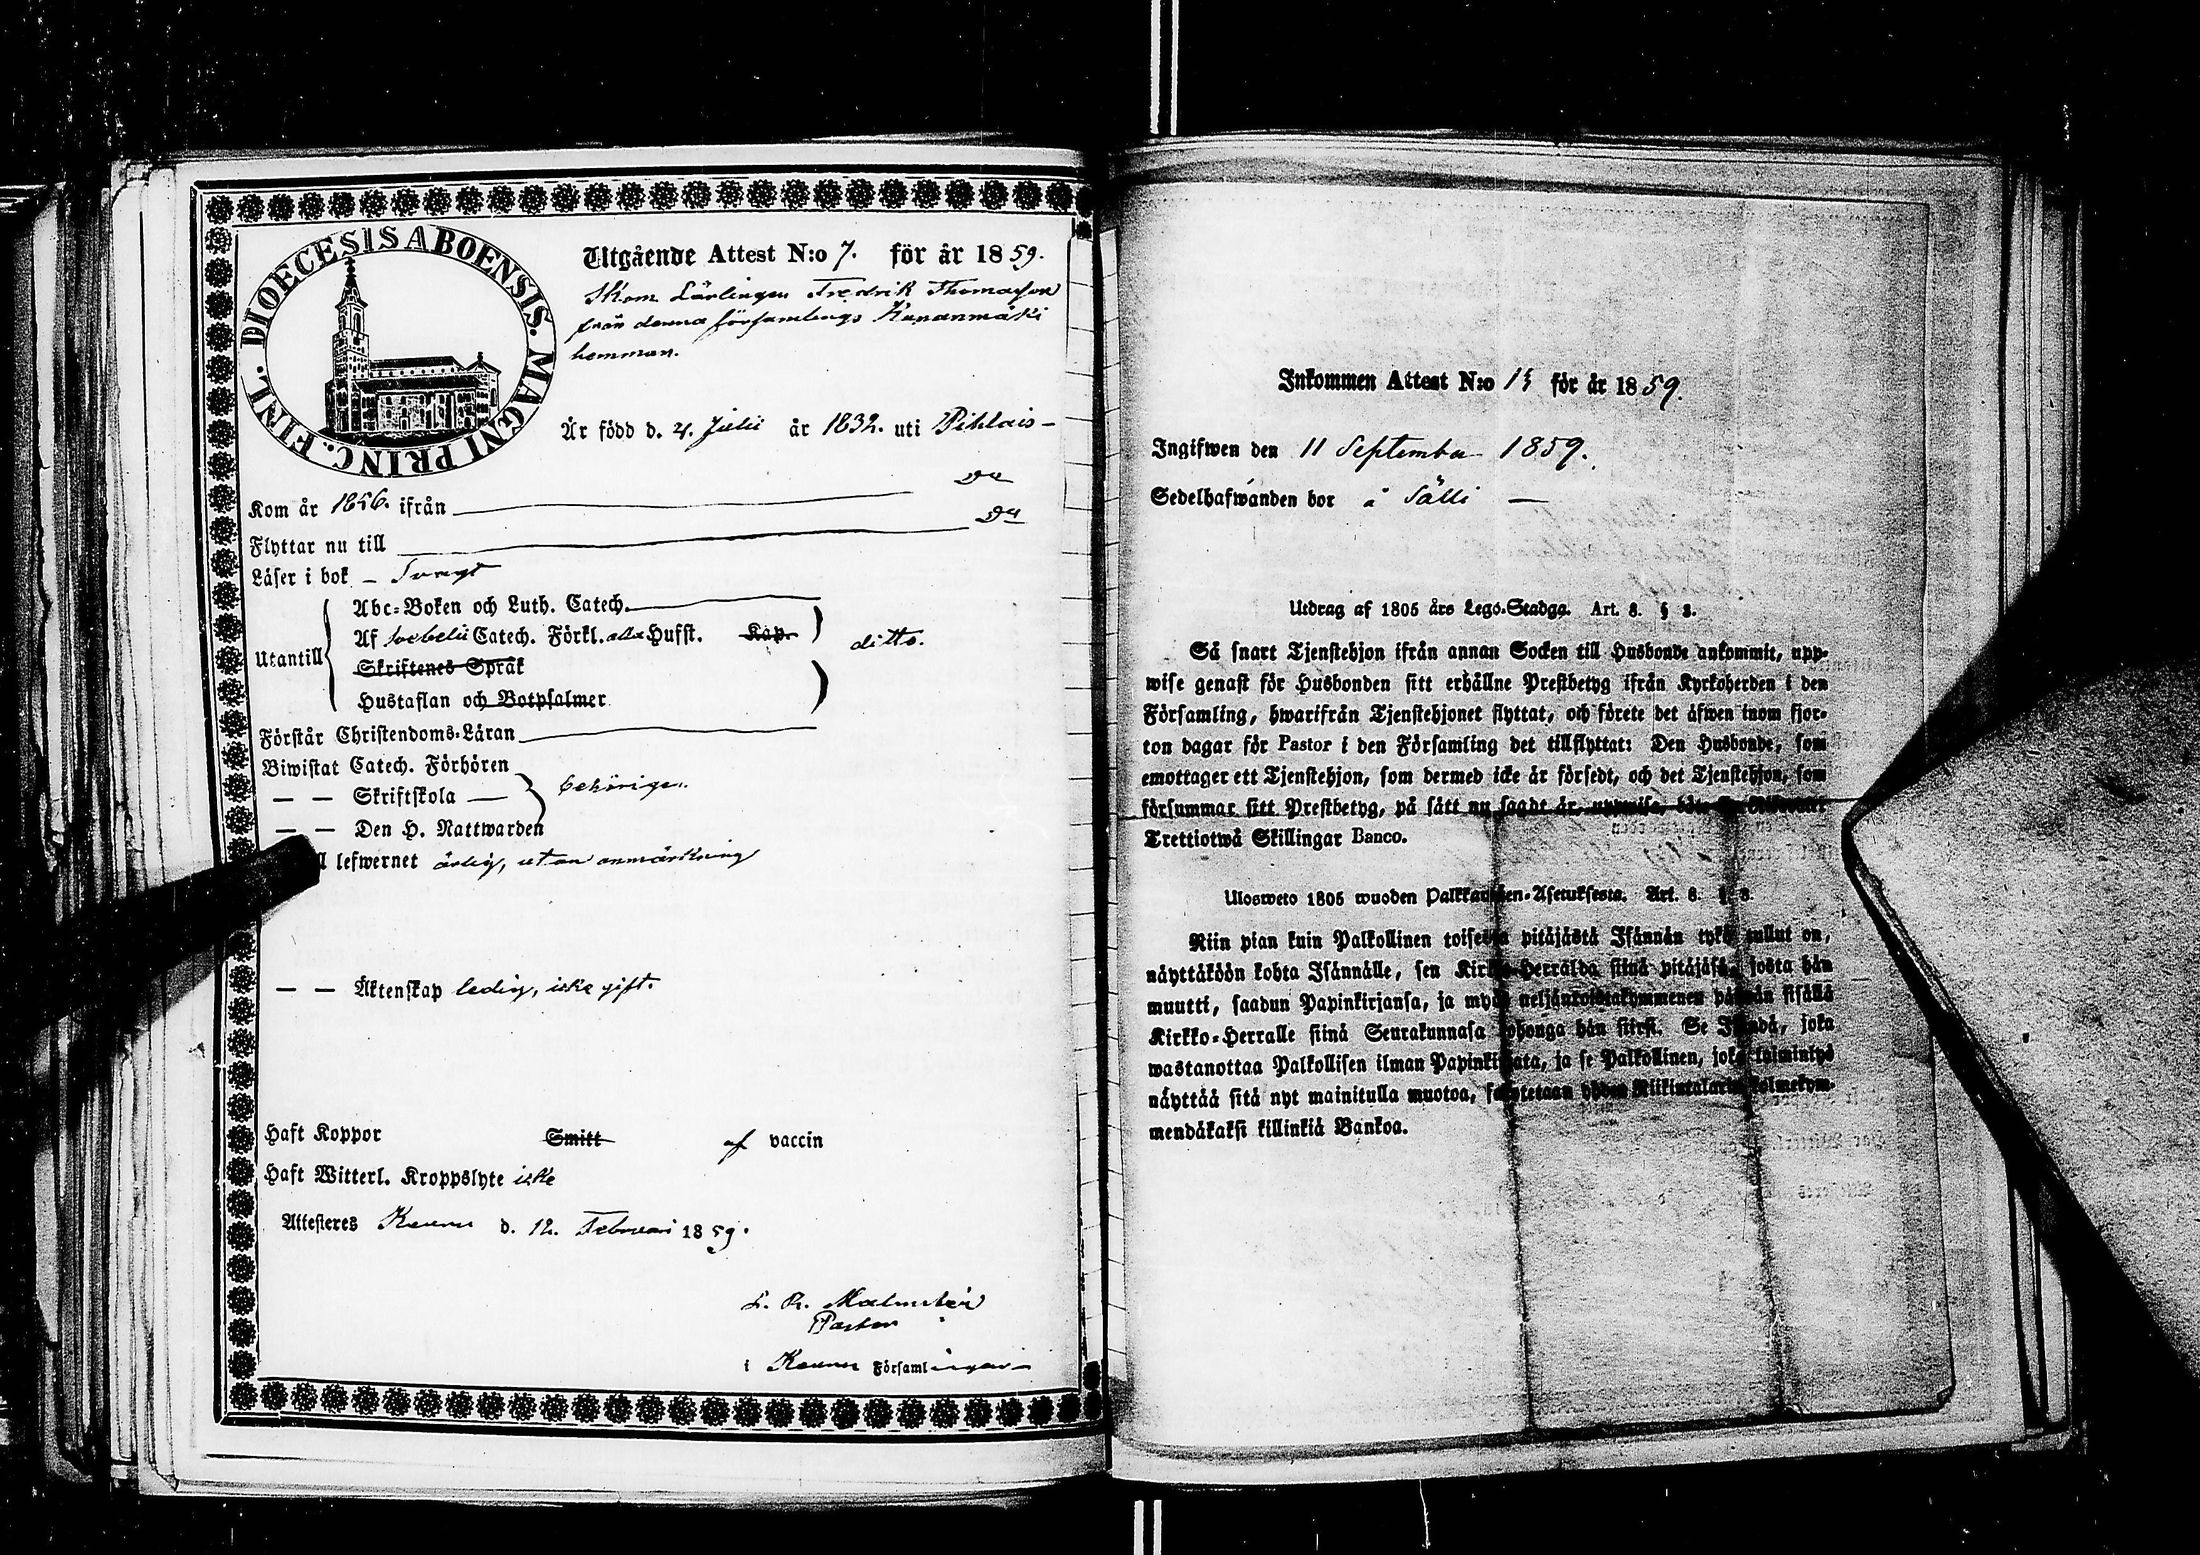 DIOECESIS ABOENSIS. MAGNI PRINC. FINL.
Utgående Attest N:o 7. för år 1859.
Skom. Lärlingen Fredrik Thomasson
från denna församlings Kananmäki
hemman.
Är född d. 4. Julii år 1832. uti Pihlais-
Kom år 1856. ifrån
Flyttar nu till
Läser i bok - Svagt
Utantill
Abc-Boken och Luth. Catech.
Af Svebelii Catech. Förkl. alla Hufst. Kap.
ditto.
Skriftenes Språk
Hustaflan och Botpsalmer
Förstår Christendoms-Läran
Biwistat Catech. Förhören
— — Skriftskola — behörigen.
— — Den H. Nattwarden
lefwernet ärlig, utan anmärkning
— — Äktenskap ledig, icke gift.
Haft Koppor Smitt af vaccin
Haft Witterl. Kroppslyte icke
Attesteres Keuru d. 12. Februari 1859.
Malmstén
Pastor
i Keuru Församlingar
Inkommen Attest N:o för år 1859.
Ingifwen den 11 September 1859.
Sedelhafwanden bor å Sälli —
Utdrag af 1805 års Lego-Stadga. Art. 8. § 8.
Så snart Tjenstehjon ifrån annan Socken till Husbonde ankommit, upp-
wise genast för Husbonden sitt erhållne Prestbetyg ifrån Kyrkoherden i den
Församling, hwarifrån Tjenstehjonet flyttat, och förete det äfwen inom fjor-
ton dagar för Pastor i den Församling det tillflyttat: Den Husbonde, som
emottager ett Tjenstehjon, som dermed icke är försedt, och det Tjenstehjon, som
försummar sitt Prestbetyg, på sätt nu sagdt är, uppwisa,
Trettiotwå Skillingar Banco.
Ulosweto 1805 wuoden Palkkawäen-Asetuksesta. Art. 8. § 8.
Niin pian kuin Palkollinen toisesta pitäjästä Isännän tykö tullut on,
näyttäköön kohta Isännälle, sen Kirkko-Herralda siinä pitäjäsä, josta hän
muutti, saadun Papinkirjansa, ja myös neljäntoistakymmenen päiwän sisällä
Kirkko-Herralle siinä Seurakunnasa johonga hän siirsi. Se Isändä, joka
wastanottaa Palkollisen ilman Papinkirjata, ja se Palkollinen, joka laiminlyö
näyttää sitä nyt mainitulla muotoa, sakotetaan yhden Riikintalarin kolmekym-
mendäkaksi killinkiä Bankoa.